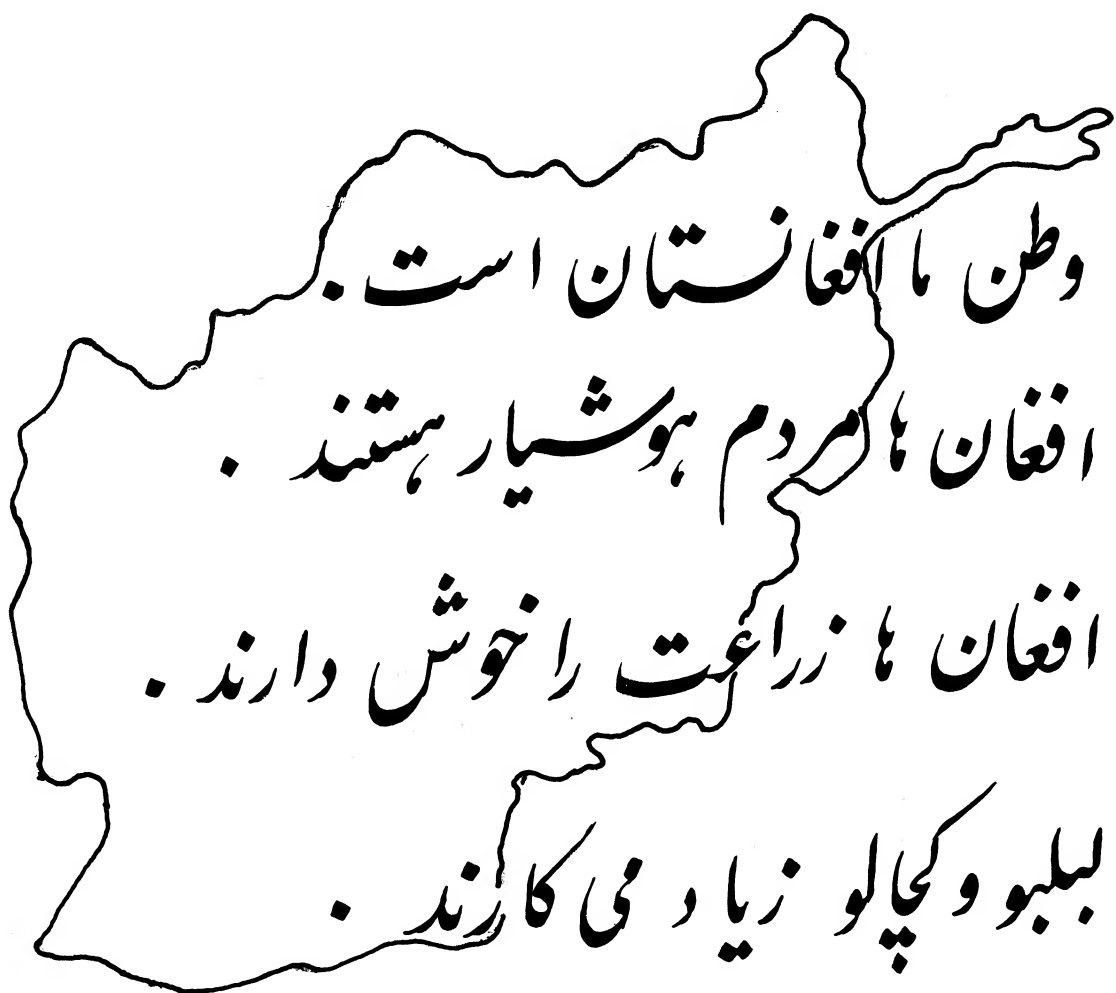 وطن ما افغانستان است .
افغان ها مردم هوشیار هستند .
افغان ها زراعت را خوش دارند .
لبلبو و کچالو زیاد می کارند .